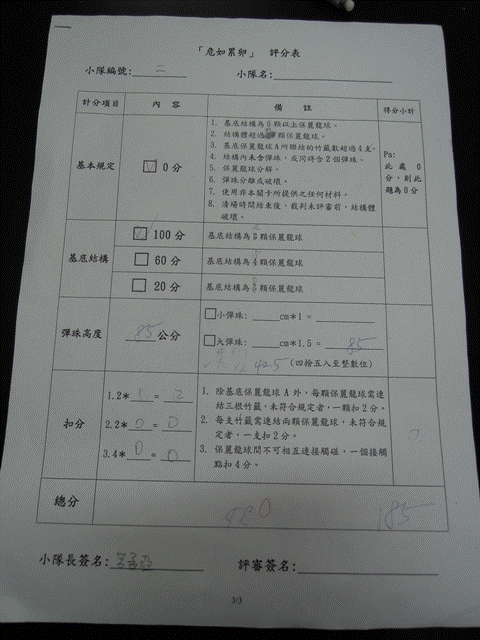 「危如累卵」 評分表
小隊編號: 二 小隊名:
計分項目 內容 備註 得分小計
基本規定 ☑ 0 分
1. 基底結構為 6 顆以上保麗龍球。
2. 結構體超過 顆保麗龍球。
3. 基底保麗龍球 A 所聯結的竹籤數超過 4 支。
4. 結構內未含彈珠，或同時含 2 個彈珠。
5. 保麗龍球分解。
6. 彈珠分離或破壞。
7. 使用非本關卡所提供之任何材料。
8. 清場時間結束後，裁判未評審前，結構體
破壞。
Ps:
此處 0
分，則此
題為 0 分
基底結構
☑ 100 分 基底結構為 顆保麗龍球
□ 60 分 基底結構為 顆保麗龍球
□ 20 分 基底結構為 顆保麗龍球
彈珠高度 85 公分
□小彈珠: cm*1 =
□大彈珠: cm*1.5 = 85
42.5 (四捨五入至整數位)
扣分
1.2* 1 = 2
2.2* 0 = 0
3.4* 0 = 0
1. 除基底保麗龍球 A 外，每顆保麗龍球需連
結三根竹籤，未符合規定者，一顆扣 2 分。
2. 每支竹籤需連結兩顆保麗龍球，未符合規
定者，一支扣 2 分。
3. 保麗龍球間不可相互連接觸碰，一個接觸
點扣 4 分。
0
總分 185
小隊長簽名: 評審簽名:
3/3